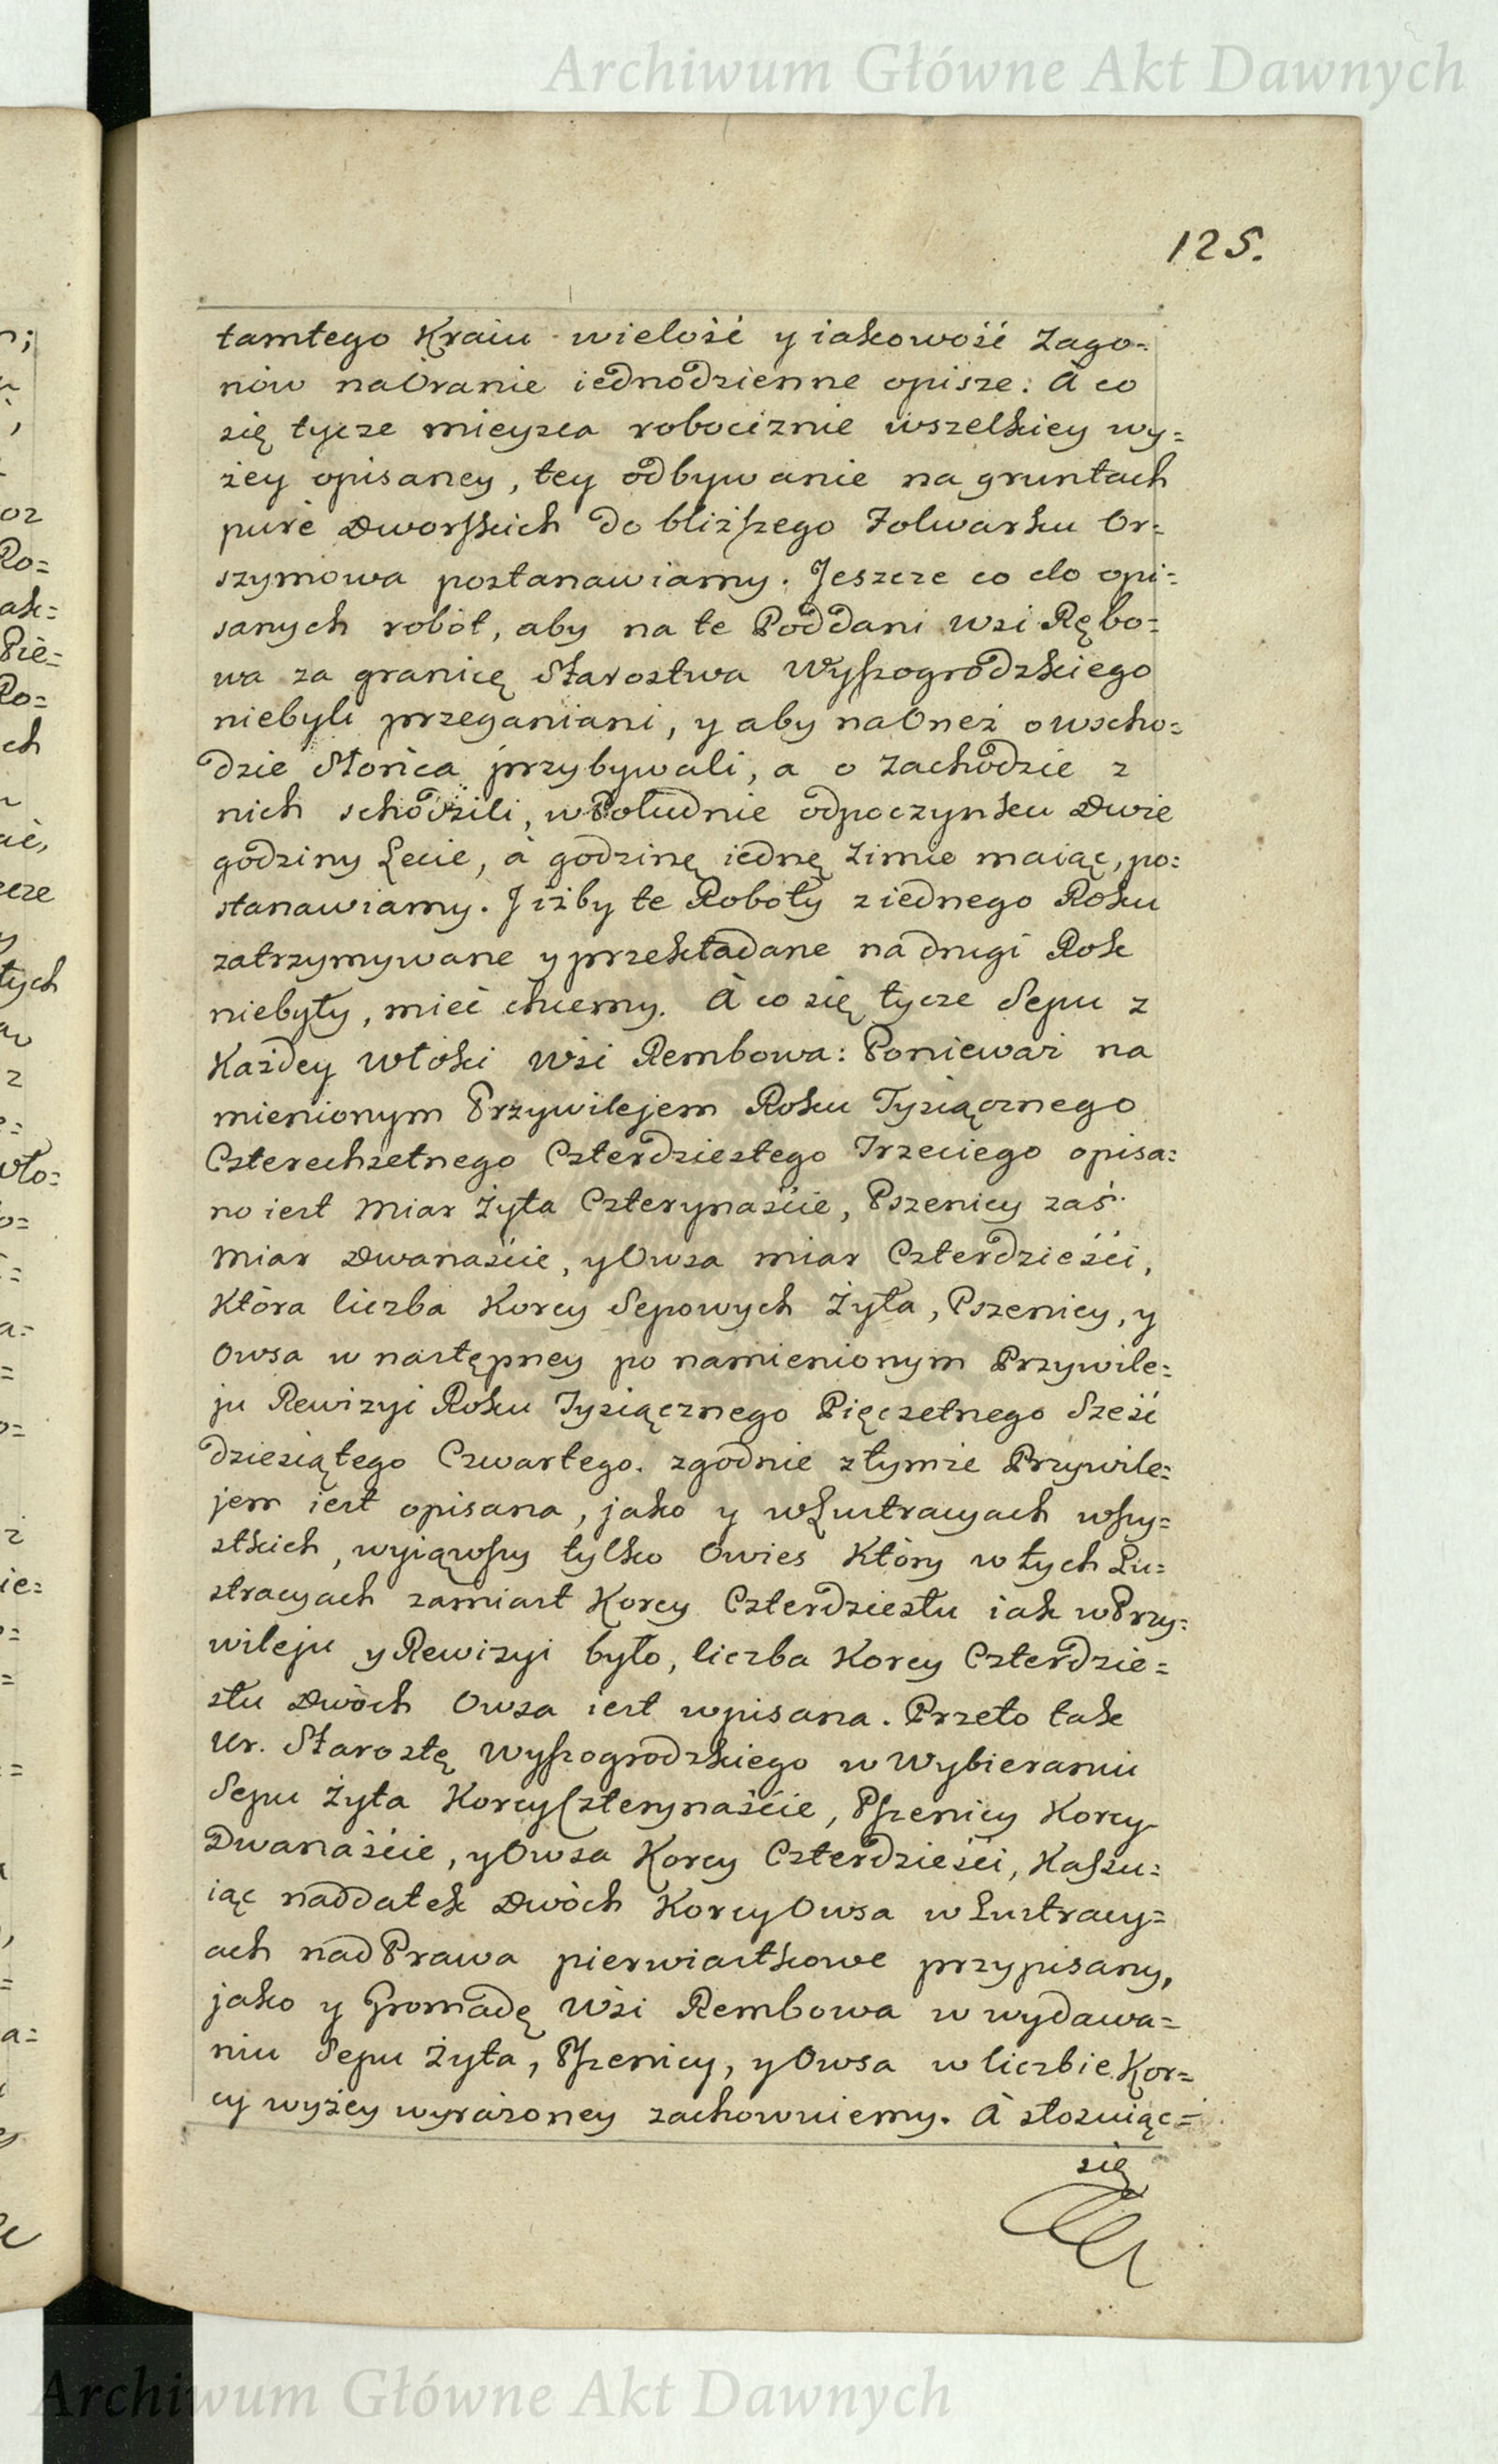 Archiwum Główne Akt Dawnych
125.
tamtego Kraiu wielość y iakowość Zago=
nów na Oranie iednodzienne opisze: A co
się tycze mieysca robociznie wszelkiey wy=
żey opisaney, tey odbywanie na gruntach
puré Dworskich do bliższego Folwarku Or=
szymowa postanawiamy. Jeszcze co do opi=
sanych robót, aby na te Poddani Wsi Rębo=
wa za granicę Starostwa Wyszogrodzkiego
niebyli przeganiani, y aby na Oneż o wscho=
dzie Słońca przybywali, a o Zachodzie z
nich schodzili, w Południe odpoczynku Dwie
godziny Lecie, á godzinę iednę Zimie maiąc, po=
stanawiamy. J iżby te Roboty z iednego Roku
zatrzymywane y przekładane na drugi Rok
niebyły, mieć chcemy. A co się tycze Sepu z
Każdey Włóki Wsi Rembowa: Ponieważ na
mienionym Przywilejem Roku Tysiącznego
Czterechsetnego Czterdziestego Trzeciego opisa=
no iest Miar Żyta Czterynaście, Pszenicy zaś
Miar Dwanaście, y Owsa miar Czterdzieści,
Która liczba Korcy Sepowych Żyta, Pszenicy, y
Owsa w następney po namienionym Przywile=
ju Rewizyi Roku Tysiącznego Pięcsetnego Sześć
dziesiątego Czwartego. zgodnie z tymże Przywile=
jem iest opisana, jako y w Lustracyach wszy=
stkich, wyiąwszy tylko Owies Który w tych Lu=
stracyach zamiast Korcy Czterdziestu iak w Przy=
wileju y Rewizyi było, liczba Korcy Czterdzie=
stu Dwóch Owsa iest wpisana. Przeto tak
Ur. Starostę Wyszogrodzkiego w Wybieraniu
Sepu Żyta Korcy Czterynaście, Pszenicy Korcy
Dwanaście, y Owsa Korcy Czterdzieści, Kassu=
iąc naddatek Dwóch Korcy Owsa w Lustracy=
ach nad Prawa pierwiastkowe przypisany,
jako y Gromadę Wsi Rembowa w wydawa=
niu Sepu Żyta, Pszenicy, y Owsa w liczbie Kor=
cy wyżey wyrażoney zachowuiemy. A stosuiąc=
się
Archiwum Główne Akt Dawnych